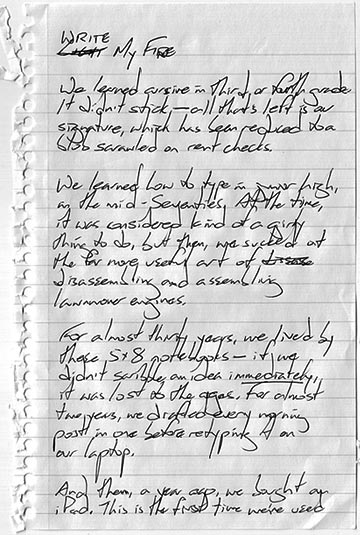 WRITE
Light My Fire
We learned cursive in third or fourth grade
It didn't stick — all that's left is our
signature, which has been reduced to a
blob scrawled on rent checks.
We learned how to type in junior high,
in the mid-Seventies. At the time,
it was considered kind of a girly
thing to do, but then, we sucked at
the far more useful art of
disassembling and assembling
lawnmower engines.
For almost thirty years, we lived by
these 5x8 notebooks — if we
didn't scribble an idea immediately,
it was lost to the ages. For almost
two years, we drafted every morning
post in one before retyping it on
our laptop.
And then, a year ago, we bought an
iPad. This is the first time we've used